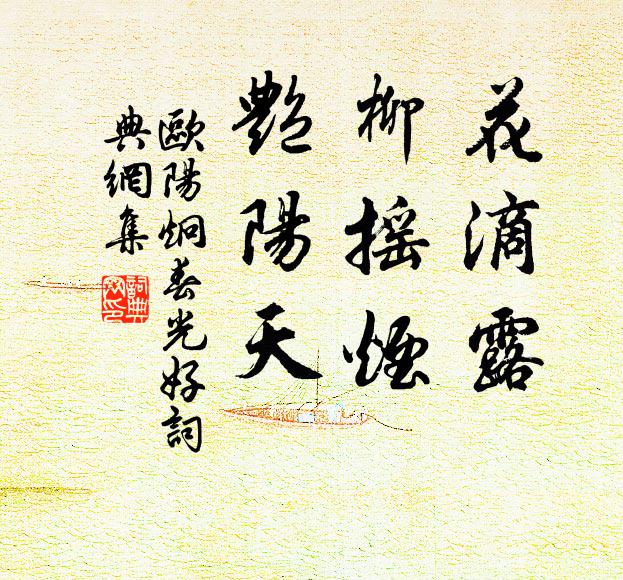 花滴露
柳搖煙
艷陽天
歐陽炯春光好詞
典網集